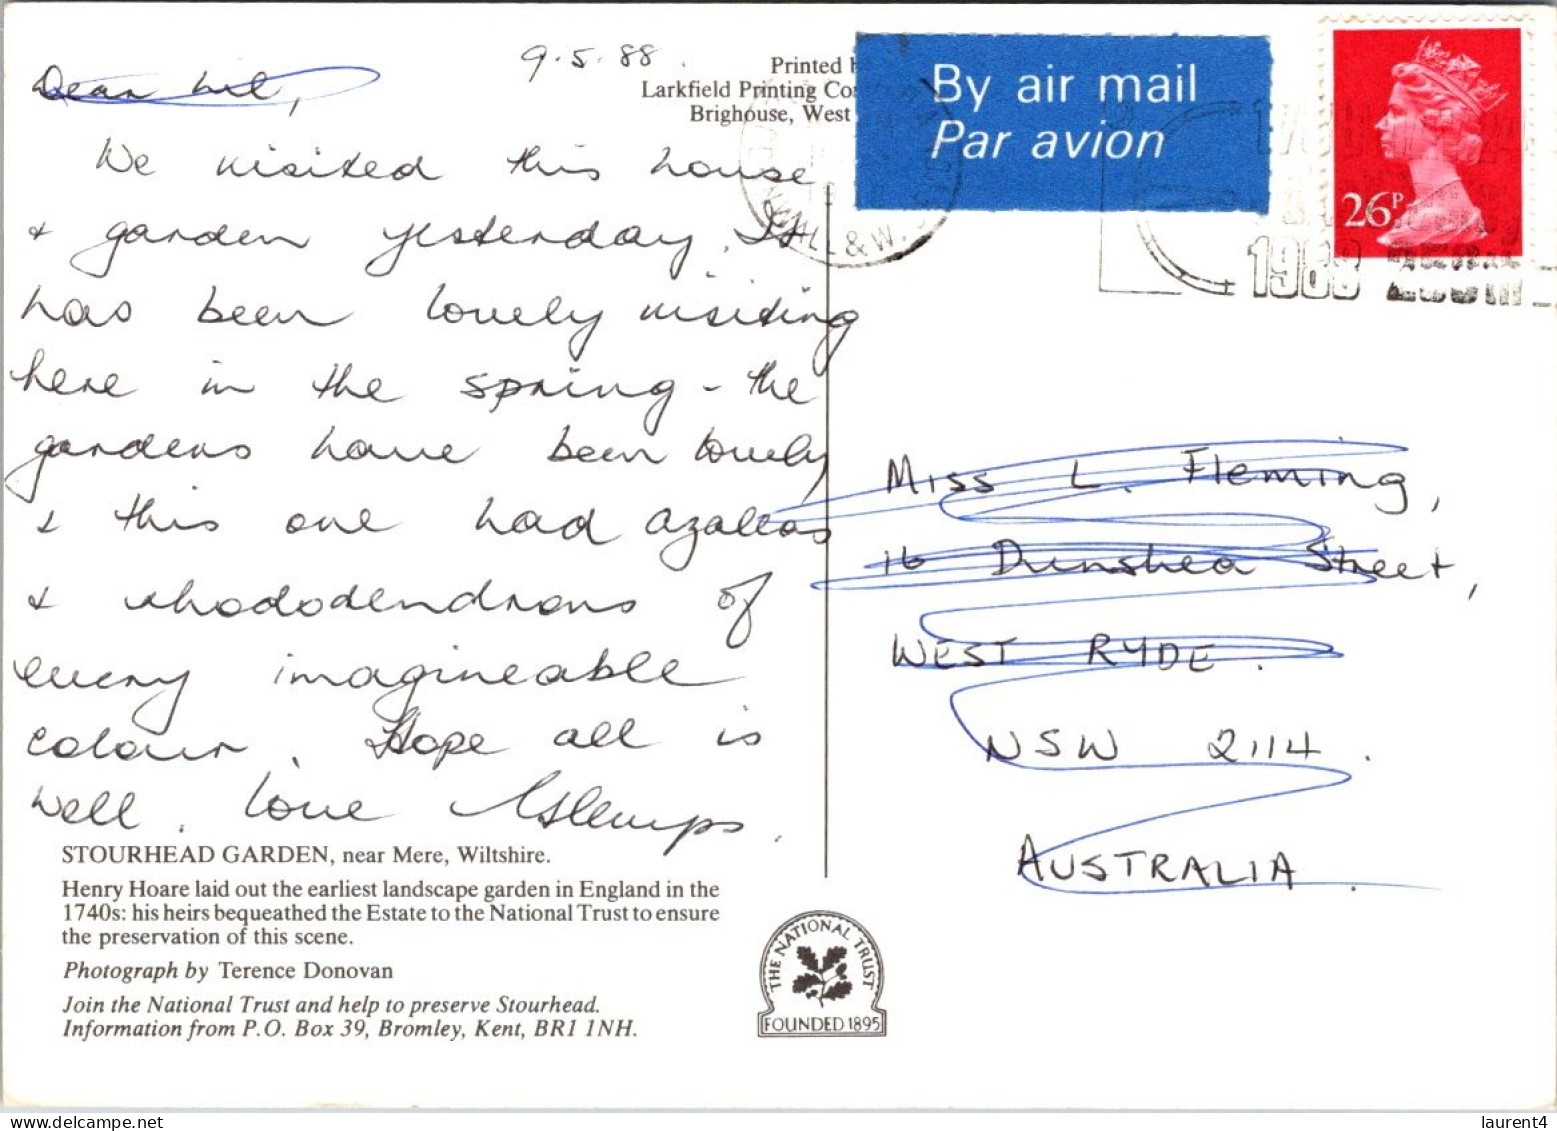 9.5.88.
Dear Lil,
We visited this house
& garden yesterday. It
has been lovely visiting
here in the spring - the
gardens have been lovely
& this one had azaleas
& rhododendrons of
every imagineable
colour. Hope all is
well. Love
STOURHEAD GARDEN, near Mere, Wiltshire.
Henry Hoare laid out the earliest landscape garden in England in the
1740s: his heirs bequeathed the Estate to the National Trust to ensure
the preservation of this scene.
Photograph by Terence Donovan
Join the National Trust and help to preserve Stourhead.
Information from P.O. Box 39, Bromley, Kent, BR1 1NH.
Printed
Larkfield Printing
Brighouse, West
By air mail
Par avion
26P
ALL & W.
1988
Miss L. Fleming,
16 Dunshea Street,
WEST RYDE.
NSW 2114.
AUSTRALIA.
THE NATIONAL TRUST
FOUNDED 1895
laurent4